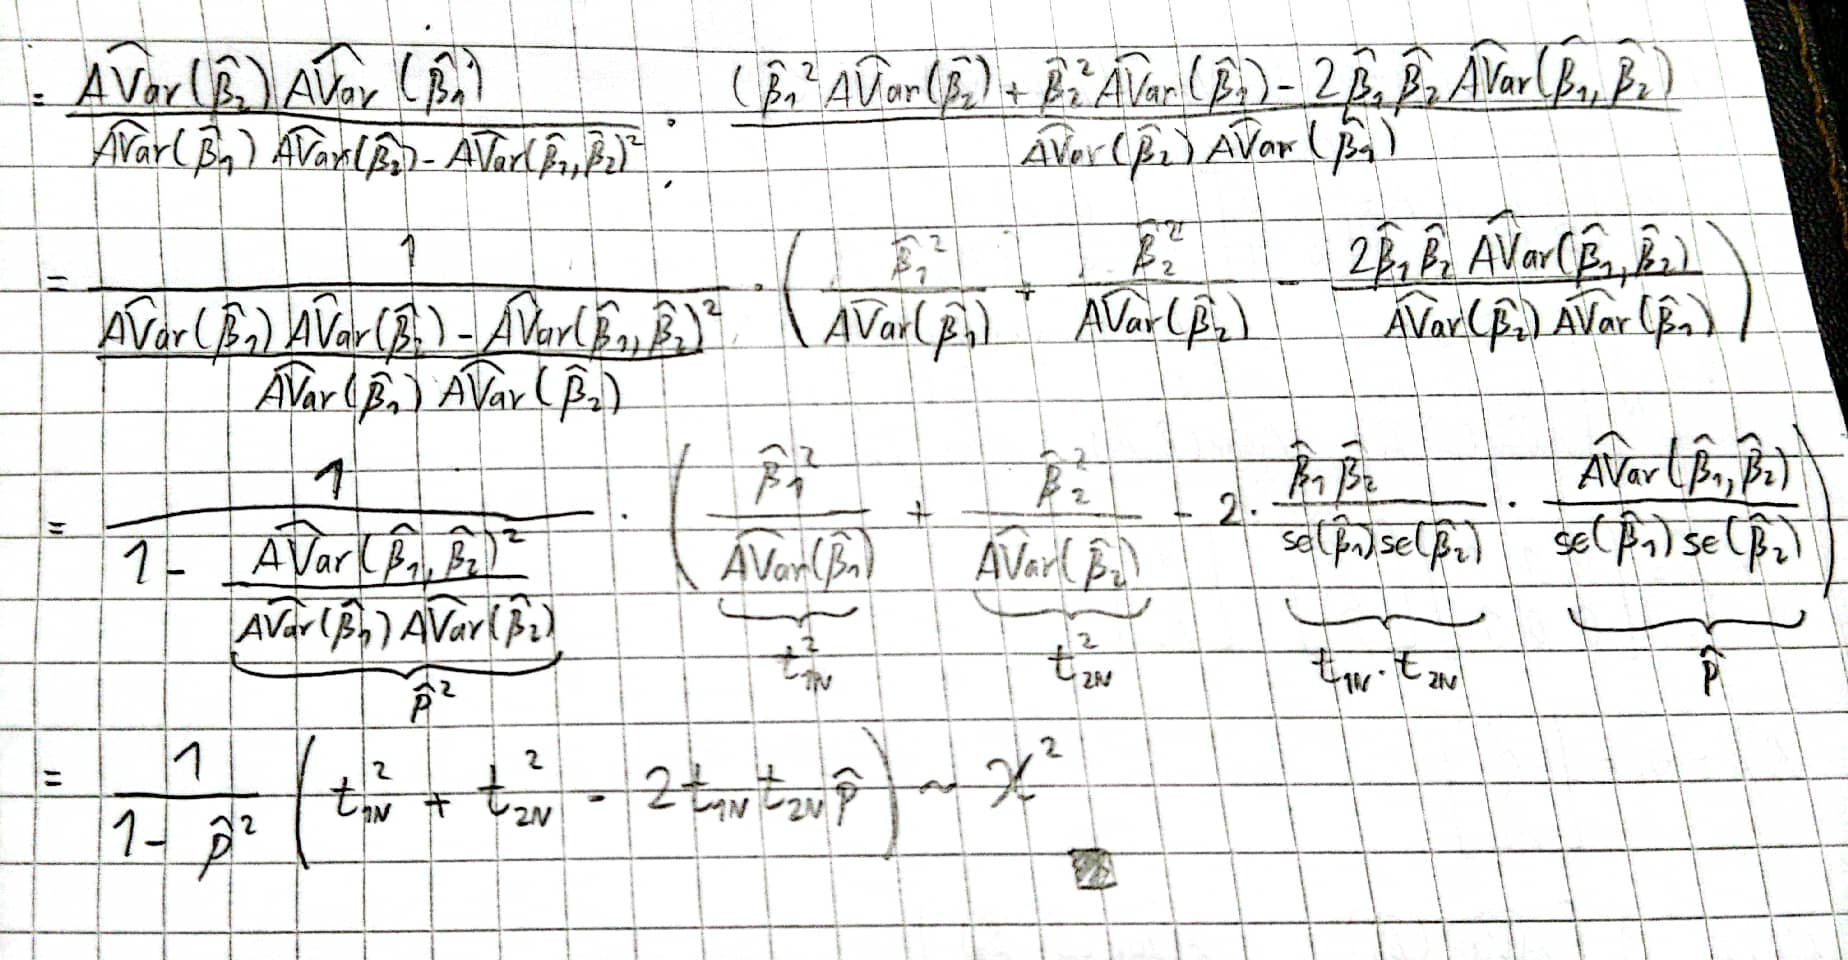 = \frac{\widehat{AVar}(\hat{β}_2) \widehat{AVar}(\hat{β}_1)}{\widehat{AVar}(\hat{β}_1) \widehat{AVar}(\hat{β}_2) - \widehat{AVar}(\hat{β}_1, \hat{β}_2)^2} \cdot \frac{(\hat{β}_1^2 \widehat{AVar}(\hat{β}_2) + \hat{β}_2^2 \widehat{AVar}(\hat{β}_1) - 2 \hat{β}_1 \hat{β}_2 \widehat{AVar}(\hat{β}_1, \hat{β}_2)}{\widehat{AVar}(\hat{β}_2) \widehat{AVar}(\hat{β}_1)}
= \frac{1}{\frac{\widehat{AVar}(\hat{β}_1) \widehat{AVar}(\hat{β}_2) - \widehat{AVar}(\hat{β}_1, \hat{β}_2)^2}{\widehat{AVar}(\hat{β}_1) \widehat{AVar}(\hat{β}_2)}} \cdot \left( \frac{\hat{β}_1^2}{\widehat{AVar}(\hat{β}_1)} + \frac{\hat{β}_2^2}{\widehat{AVar}(\hat{β}_2)} - \frac{2 \hat{β}_1 \hat{β}_2 \widehat{AVar}(\hat{β}_1, \hat{β}_2)}{\widehat{AVar}(\hat{β}_2) \widehat{AVar}(\hat{β}_1)} \right)
= \frac{1}{1 - \underbrace{\frac{\widehat{AVar}(\hat{β}_1, \hat{β}_2)^2}{\widehat{AVar}(\hat{β}_1) \widehat{AVar}(\hat{β}_2)}}_{\hat{ρ}^2}} \cdot \left( \underbrace{\frac{\hat{β}_1^2}{\widehat{AVar}(\hat{β}_1)}}_{t_{1N}^2} + \underbrace{\frac{\hat{β}_2^2}{\widehat{AVar}(\hat{β}_2)}}_{t_{2N}^2} - 2 \cdot \underbrace{\frac{\hat{β}_1 \hat{β}_2}{se(\hat{β}_1) se(\hat{β}_2)}}_{t_{1N} \cdot t_{2N}} \cdot \underbrace{\frac{\widehat{AVar}(\hat{β}_1, \hat{β}_2)}{se(\hat{β}_1) se(\hat{β}_2)}}_{\hat{ρ}} \right)
= \frac{1}{1 - \hat{ρ}^2} \left( t_{1N}^2 + t_{2N}^2 - 2 t_{1N} t_{2N} \hat{ρ} \right) \sim χ^2